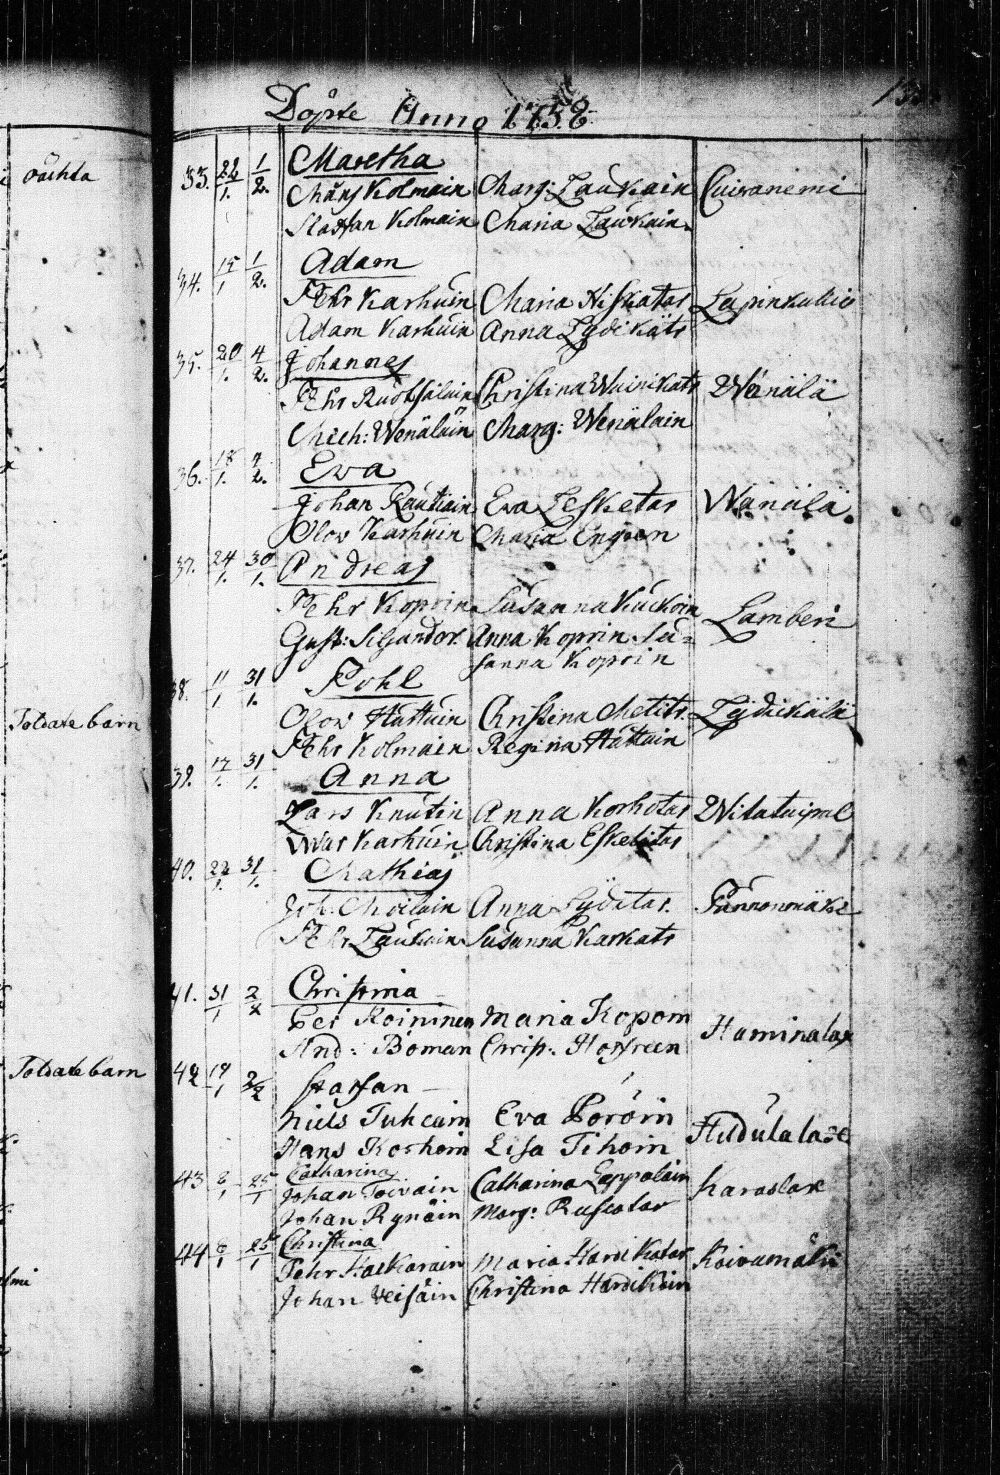 Döpte Anno 1758
33. 22/1. 1/2. Maretha
Måns Kolmain Marg: Laukain Cuivanemi
Staffan Kolmain Maria Laukain
34. 15/1 1/2. Adam
Pehr Karhuin Maria Hiskatar
Adam Karhuin Anna Lydikäts
35. 20/1. 4/2. Johannes
Pehr Ruotsalain Christina Wainikats Wänälä
Mich: Wenäläin Marg: Wenälain
36. 18/1. 2. Eva
Johan Rautiain Eva Lesketar Wänälä
Olov Karhuin Maria Engren
37. 24/1. 30/1. Andreas
Pehr Koproin Susanna Kuckoin Lamberi
Gust: Siljander Anna Koproin Su-
sanna Koproin
38. 11/1 31/1. Pohl
Soldate barn
Olov Hattuin Christina Metits Lydickälä
Pehr Kolmain Regina Hattain
39. 17/1. 31/1. Anna
Lars Knutin Anna Korhotar Witataipal
Karhuin Christina Eskelitar
40. 22/1. 31/1. Mathias
Joh: Moilain Anna Lydetar. Pannonmäki
Pehr Laukain Susanna Karkats
41. 31/1 2 Christina
Per Roininen Maria Kopoin Haminalax
And: Boman Christ: Hoffreen
Soldate barn
42 19/1 2/2 Staffan
Nils Tuhcain Eva Poroin Hudulalax
Hans Korhoin Lisa Tihoin
43 6/1 25/1 Catharina
Johan Toivain Catharina Leppolain Karaslax
Johan Rynäin Marg: Ruscatar
44 6/1 25/1 Christina
Pehr Haekarain Maria Hardikatar Koivumäki
Johan Veisäin Christina Hardikoin